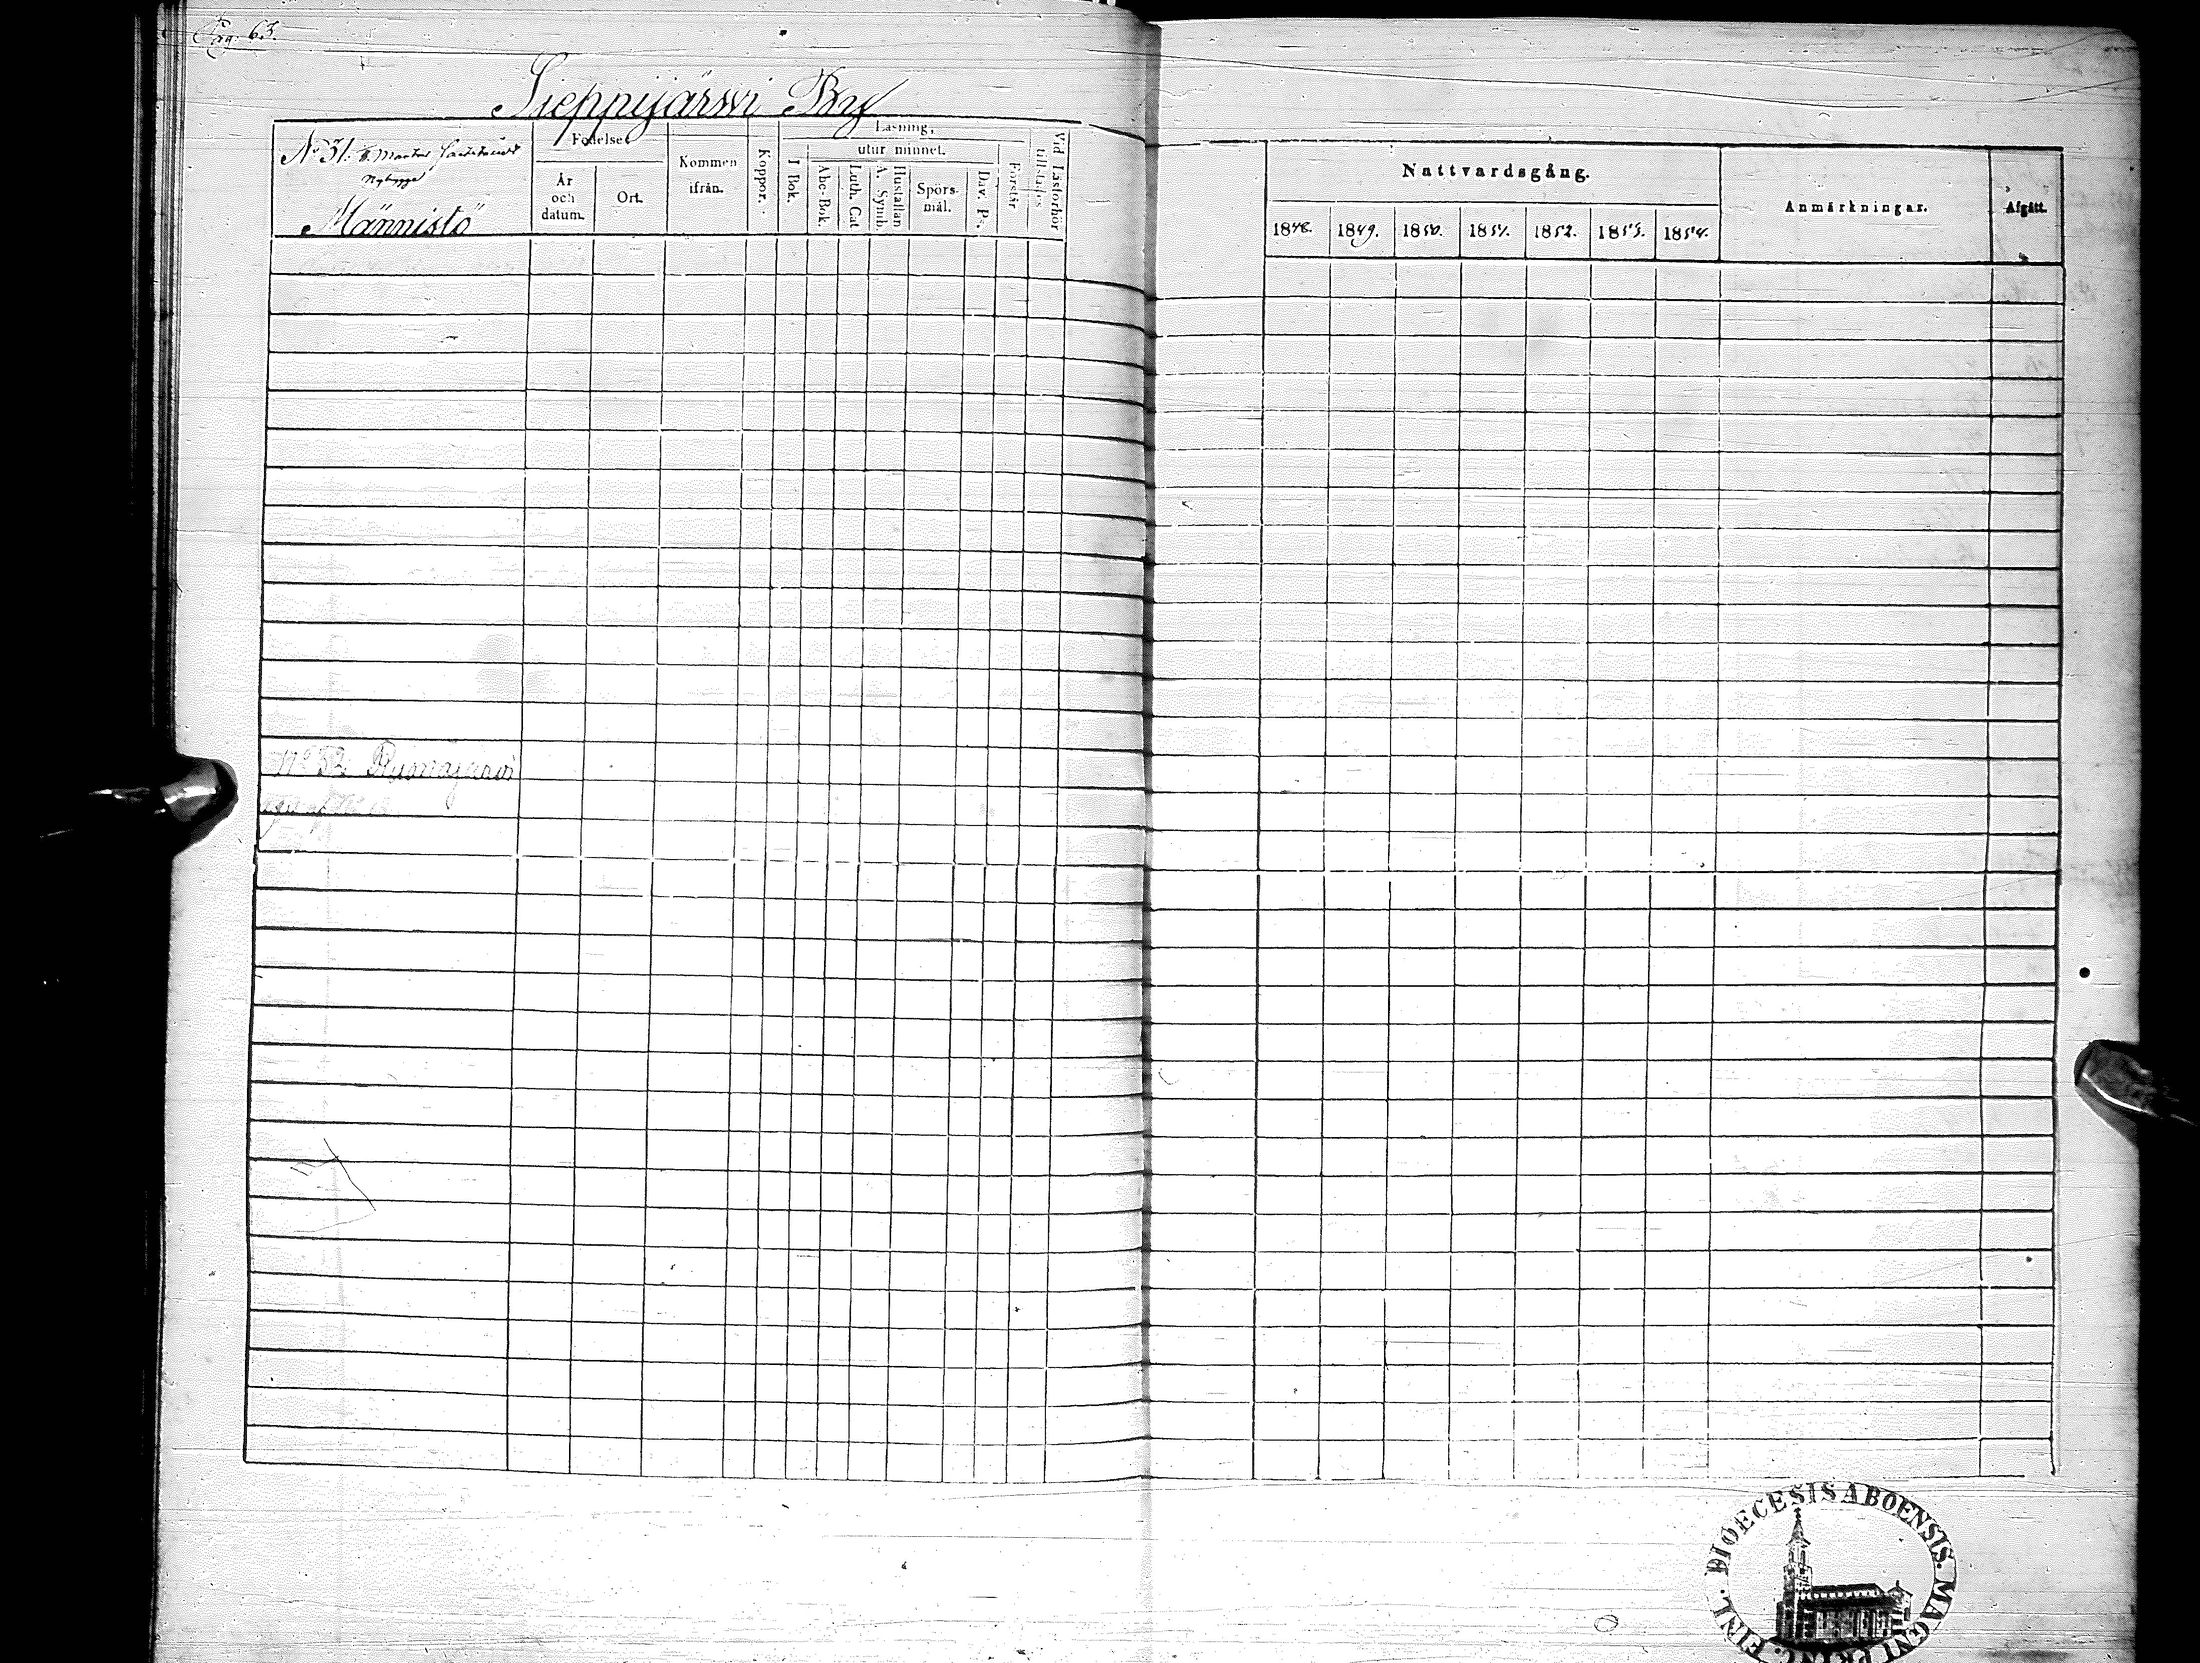 Pag. 63.
Sieppijärwi By
No 31.
Nybygge
Männistö
Födelse
År och datum.
Ort.
Kommen ifrån.
Koppor.
Läsning,
utur minnet.
I Bok.
Abc-Bok.
Luth. Cat
Hustaflan A. Symb.
Spörs-mål.
Dav. Ps.
Förstår
Vid Läsförhör tillstädes
Nattvardsgång.
1848. 1849. 1850. 1851. 1852. 1853. 1854.
Anmärkningar.
Afgått.
No 32
DIOECESIS ABOENSIS. MAGNI PRINC. FINL.